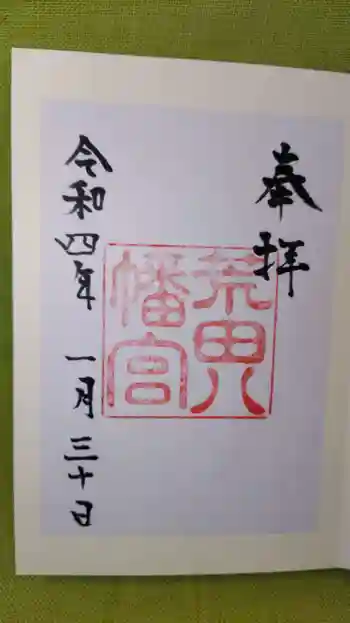 奉拝
荒田八
幡宮
令和四年 一月三十日